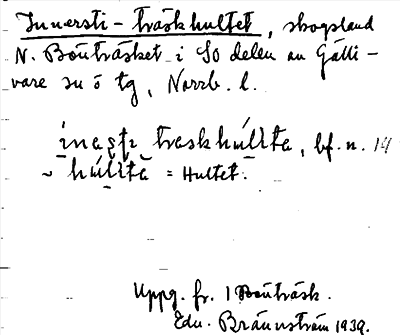 Innersti-träskhultet, skogsland
N. Bönträsket i SO delen av Gälli-
vare sn o tg, Norrb. l.
inastı traskhúllta, bf. n. 14
~ húlltä = Hultet.
Uppg. fr. 1 Bönträsk.
Edv. Brännström 1939.